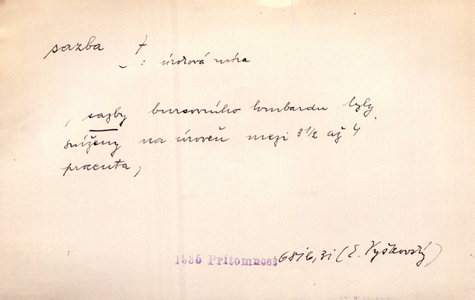 sazba f
: úroková míra
, sazby bursovního lombardu byly
sníženy na úroveň mezi 3 1/2 až 4
procenta,
1935 Přítomnost 681/6, 31 (E. Vyškovský)